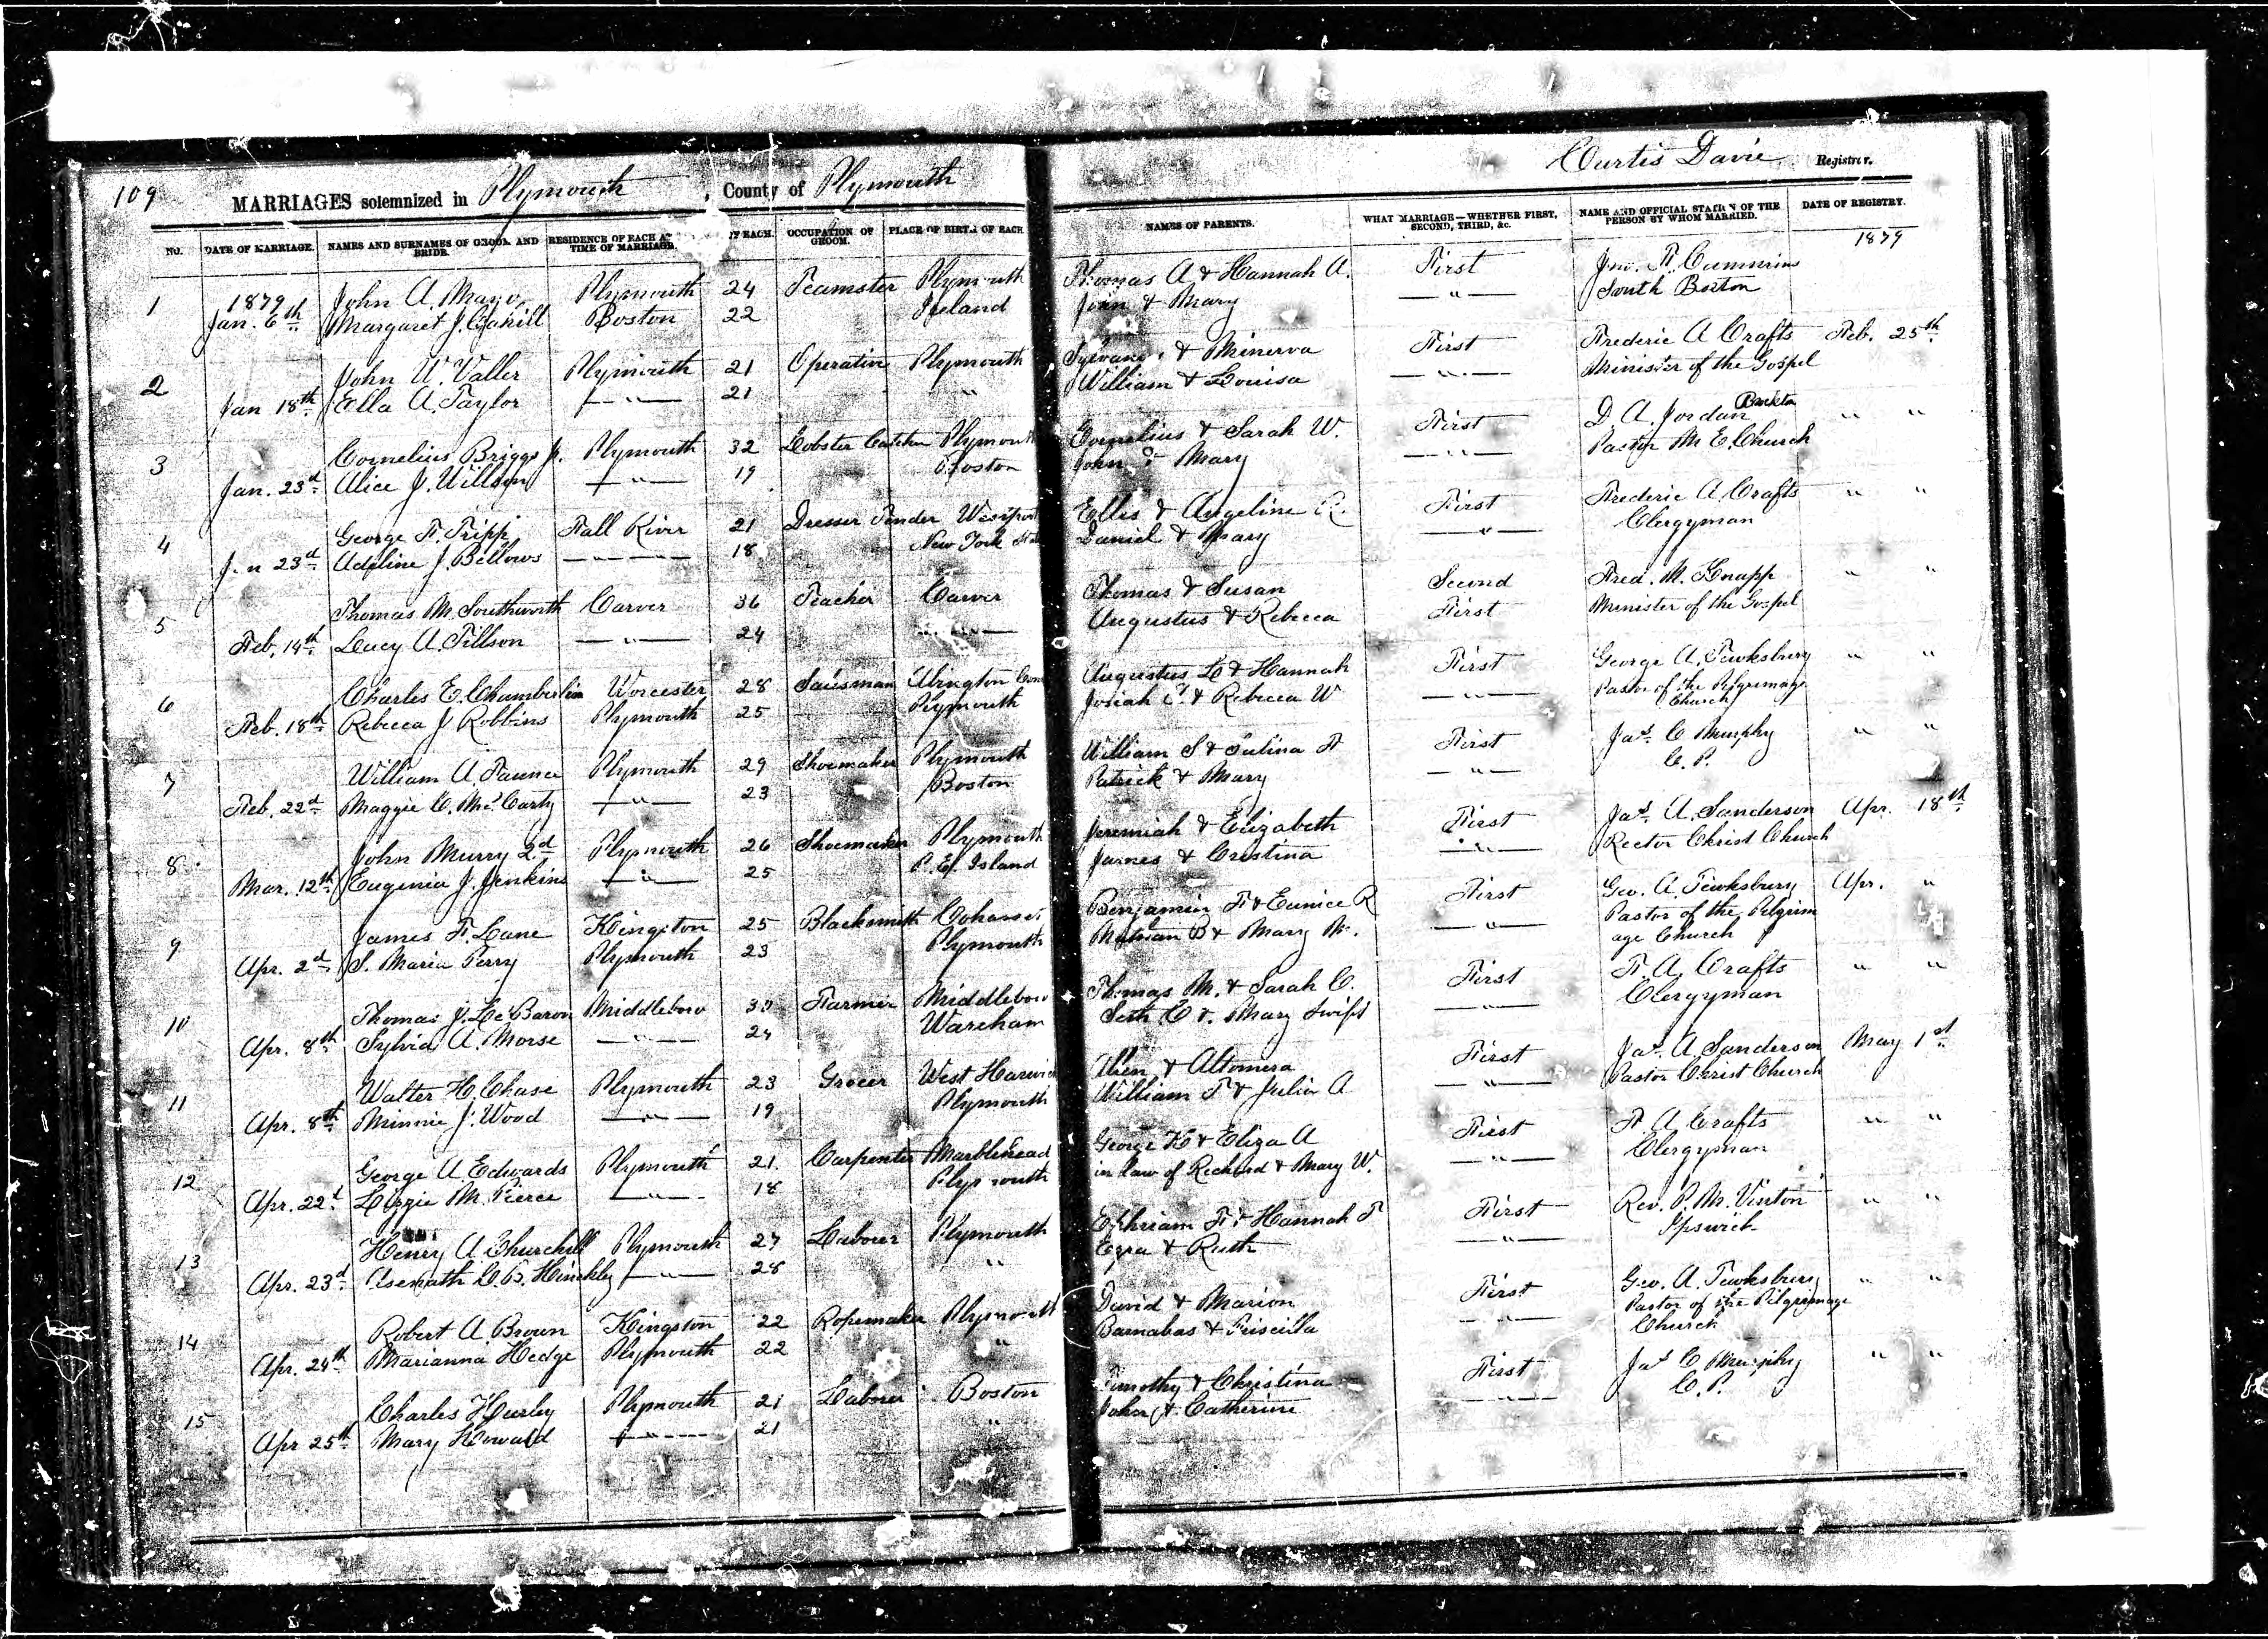 109 MARRIAGES solemnized in Plymouth, County of Plymouth Curtis Davie Registrar.
NO. DATE OF MARRIAGE. NAMES AND SURNAMES OF GROOM AND BRIDE. RESIDENCE OF EACH AT TIME OF MARRIAGE. OF EACH. OCCUPATION OF GROOM. PLACE OF BIRTH OF EACH NAMES OF PARENTS. WHAT MARRIAGE—WHETHER FIRST, SECOND, THIRD, &c. NAME AND OFFICIAL STATION OF THE PERSON BY WHOM MARRIED. DATE OF REGISTRY.
1879
1 1879 John A. Mayo Plymouth 24 Teamster Plymouth Thomas A & Hannah A. First Jno. F. Cummins
Jan. 6th Margaret J. Cahill Boston 22 Ireland John & Mary — " — South Boston
2 John W. Valler Plymouth 21 Operative Plymouth & Minerva First Frederic A Crafts Feb. 25th
Jan 18th Ella A. Taylor — " — 21 " William & Louisa — " — Minister of the Gospel
3 Cornelius Briggs Jr. Plymouth 32 Lobster Catcher Plymouth Cornelius & Sarah W. First D. A. Jordan Brockton " "
Jan. 23d Alice J. 19 Boston John & Mary — " — Pastor M E. Church
4 George F. Tripp Fall River 21 Dresser Tender Westport Ellis & Angeline R. First Frederic A. Crafts " "
Jan 23d Adeline J. Bellows — — 18 New York Daniel & Mary — " — Clergyman
5 Thomas M. Southworth Carver 36 Teacher Carver Thomas & Susan Second Fred. M. Knapp " "
Feb. 14th Lucy A. Tillson — " — 24 Augustus & Rebecca First Minister of the Gospel
6 Charles E. Chamberlin Worcester 28 Salesman Abington Conn Augustus L & Hannah First George A. Tewksbury " "
Feb. 18th Rebecca J Robbins Plymouth 25 Plymouth Josiah & Rebecca W — " — Pastor of the Pilgrimage
Church
7 William A. Faunce Plymouth 29 Shoemaker Plymouth William S & F First Jas. C Murphy " "
Feb. 22d Maggie C. McCarty — " — 23 Boston Patrick & Mary — " — C. P.
8 John Murry 2d Plymouth 26 Shoemaker Plymouth Jeremiah & Elizabeth First Jas. A. Sanderson Apr. 18th
Mar. 12th Eugenia J. Jenkins — " — 25 P. E. Island James & Crestina — " — Rector Christ Church
9 James F. Lane Kingston 25 Blacksmith Cohasset Benjamin F & Eunice R First Geo. A. Tewksbury Apr. "
Apr. 2d S. Maria Perry Plymouth 23 Plymouth B & Mary — " — Pastor of the Pilgrim
age Church
10 Thomas J. LeBaron Middleboro Farmer Middleboro Thomas M. & Sarah C. First F. A. Crafts " "
Apr. 8th Sylvia A. Morse — " — 24 Wareham Seth C & Mary Swift — " — Clergyman
11 Walter H. Chase Plymouth 23 Grocer West Harwich & Altomira First Jas. A. Sanderson May 1st
Apr. 8th Minnie J. Wood — " — 19 Plymouth William T & Julia A — " — Pastor Christ Church
12 George A. Edwards Plymouth 21 Carpenter Marblehead George & Eliza A First F A Crafts " "
Apr. 22d Lizzie M. Pierce — " — 18 Plymouth in law of Richard & Mary W. — " — Clergyman
13 Henry A Churchill Plymouth 27 Laborer Plymouth Ephriam F & Hannah T First Rev. P. M. Vinton " "
Apr. 23d Asenath Hinckley — " — 28 " Ezra & Ruth — " — Ipswich
14 Robert A. Brown Kingston 22 Ropemaker Plymouth David & Marion First Geo. A. Tewksbury " "
Apr. 24th Marianna Hedge Plymouth 22 " Barnabas & Priscilla — " — Pastor of the Pilgrimage
Church
15 Charles Hurley Plymouth 21 Laborer Boston Timothy & Christina First Jas C Murphy " "
Apr 25th Mary Howard — " — 21 " John & Catherine — " — C. P.